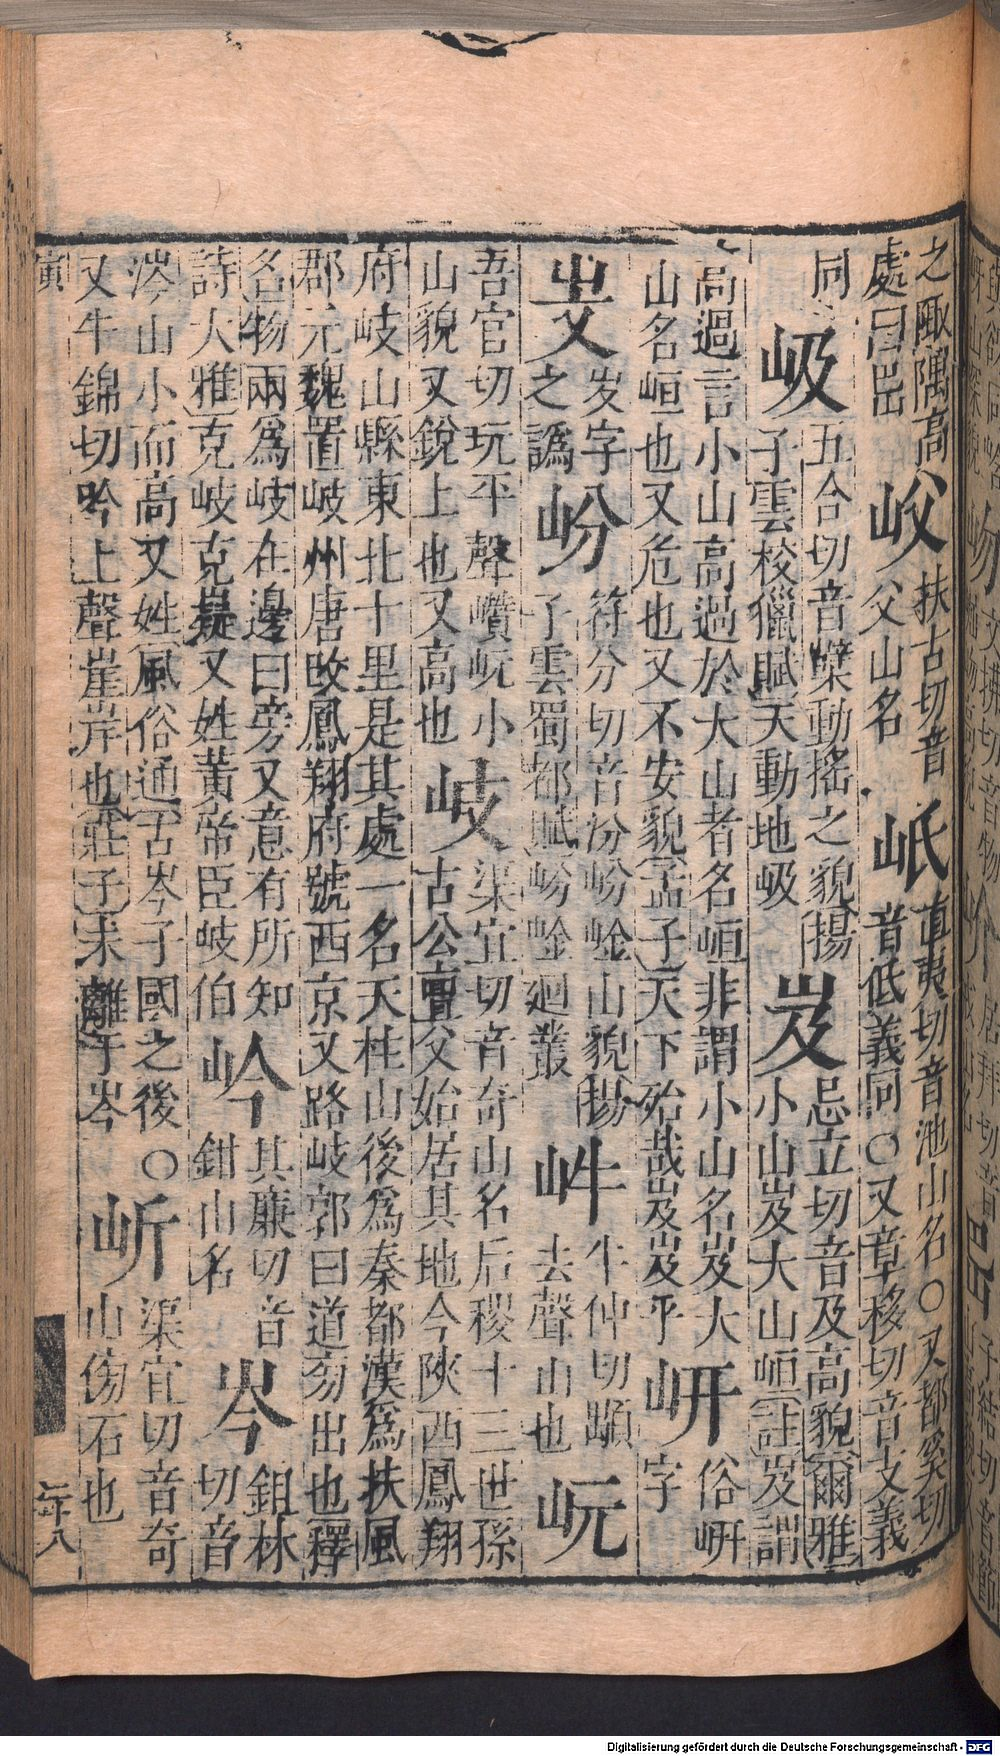 之陬隅高處曰岊 㕮 扶古切音父山名 岻 直夷切音池山名○又都奚切音低義同○又章移切音支義
同 岋 五合切音動搖之貌揚子雲校獵賦天動地岋 岌 忌立切音及高貌爾雅小山岌大山峘註岌謂
高過言小山高過於大山者名峘非謂小山名岌大山名峘也又危也又不安貌孟子天下殆哉岌岌乎 岍 俗岍字
岁字之譌 岎 符分切音汾岎崯山貌揚子雲蜀都賦岎崯廻叢 牛仲切顒去聲山也 岏
吾官切玩平聲巑岏小山貌又銳上也又高也 岐 渠宜切音奇山名后稷十三世孫古公亶父始居其地今陝西鳳翔
府岐山縣東北十里是其處一名天柱山後爲秦都漢爲扶風郡元魏置岐州唐改鳳翔府號西京又路岐郭曰道旁出也釋
名物兩爲岐在邊曰旁又意有所知詩大雅克岐克嶷又姓黃帝臣岐伯 岒 其廉切音鉗山名 岑 鉏林切音
涔山小而高又姓風俗通古岑子國之後○又牛錦切吟上聲崖岸也莊子未離于岑 岓 渠宜切音奇山傍石也
寅 二十八
Digitalisierung gefördert durch die Deutsche Forschungsgemeinschaft - DFG